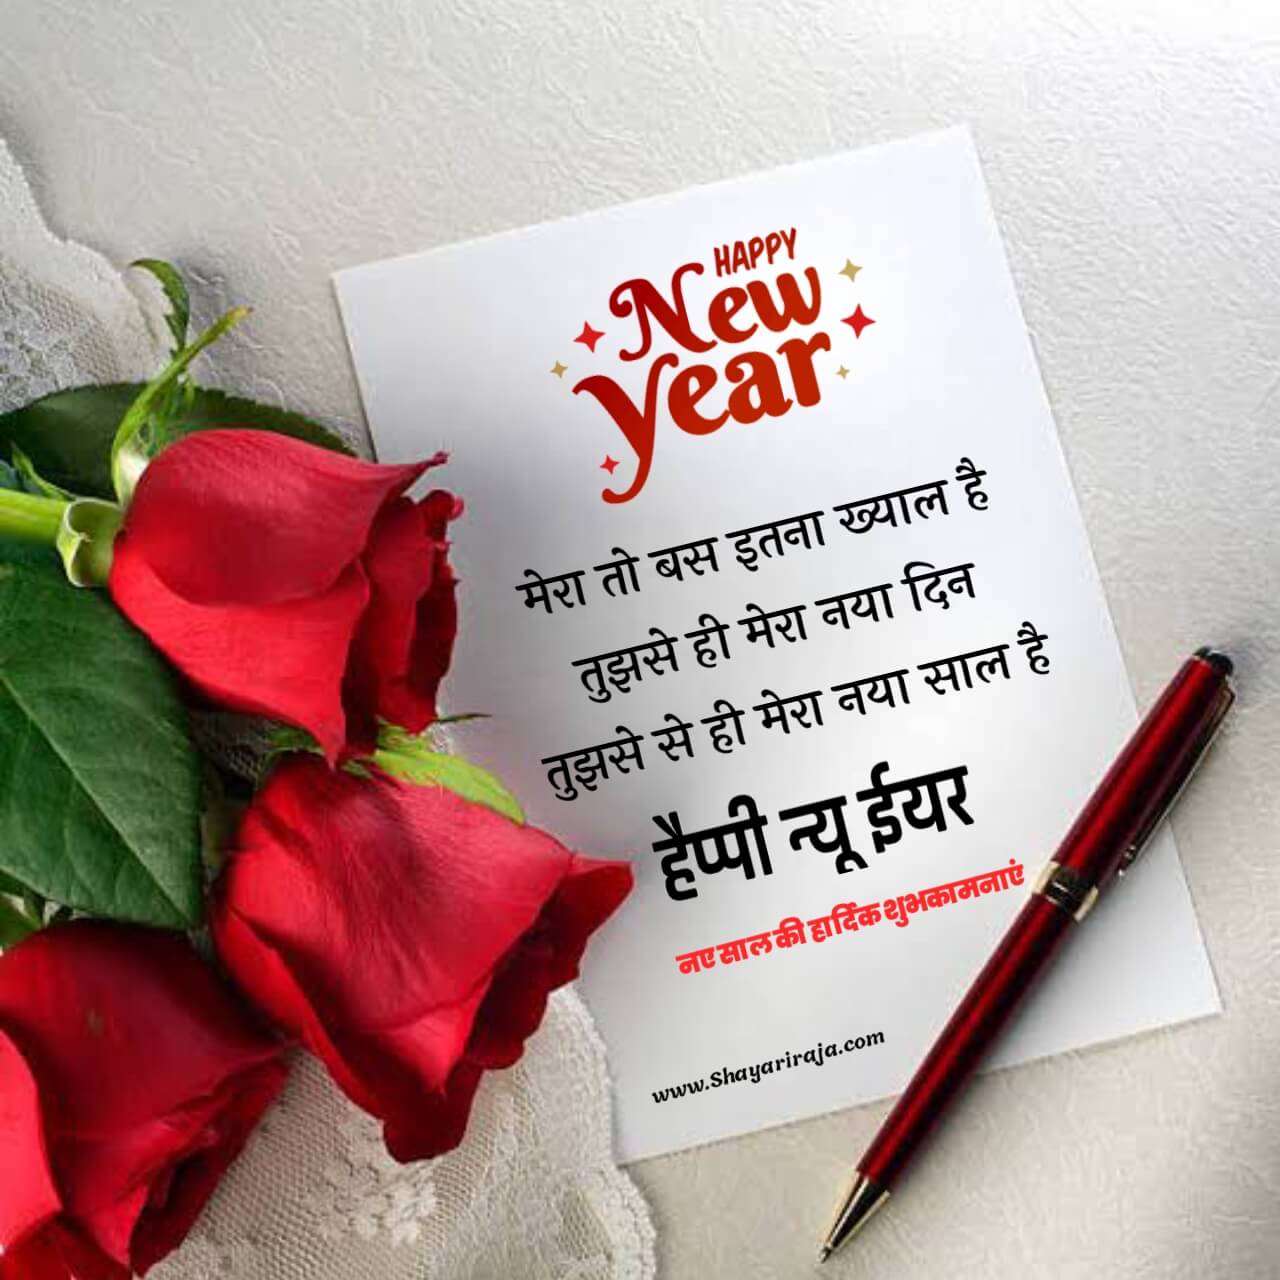 HAPPY
New
Year
मेरा तो बस इतना ख्याल है
तुझसे ही मेरा नया दिन
तुझसे से ही मेरा नया साल है
हैप्पी न्यू ईयर
नए साल की हार्दिक शुभकामनाएं
www.Shayariraja.com